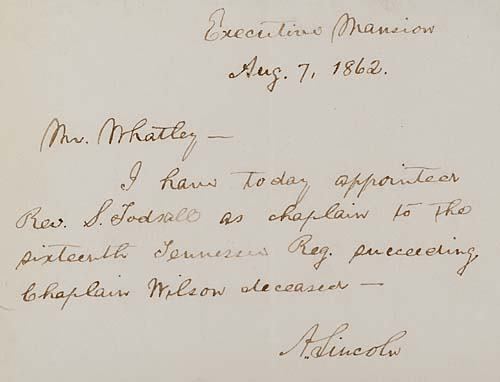 Executive Mansion
Aug. 7, 1862.
Mr. Whatley —
I have today appointed
Rev. S. Todsall as chaplain to the
sixteenth Tennessee Reg. succeeding
Chaplain Wilson deceased —
A. Lincoln